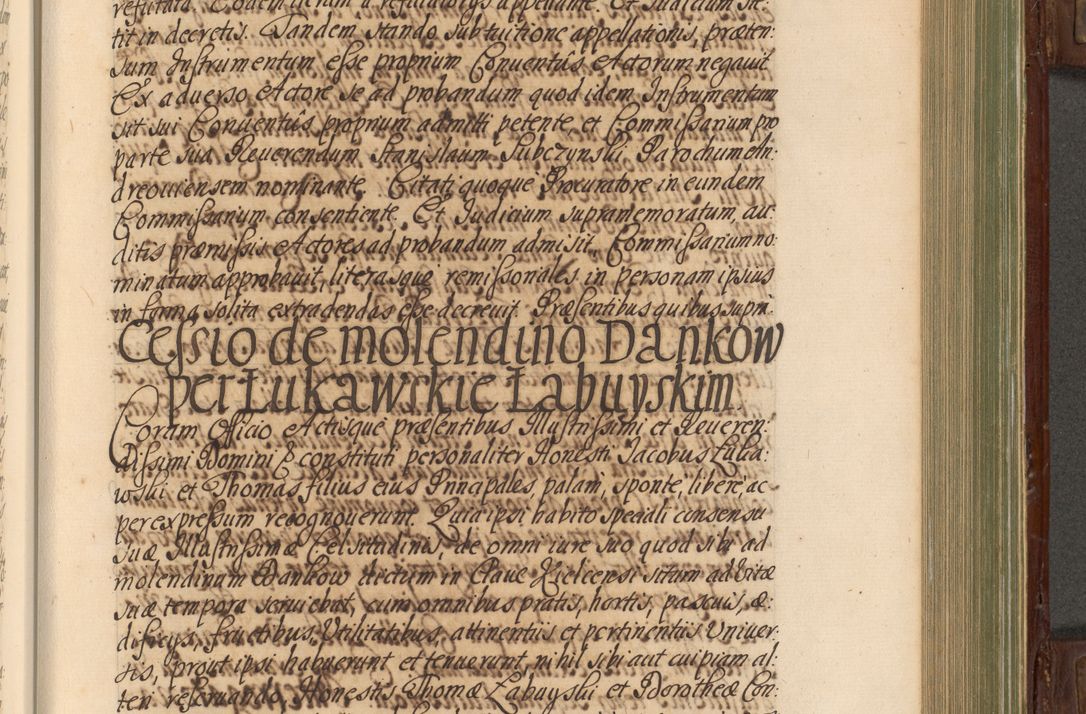 refutata. Eodem iterum a refutatorys appellante. Et Judicium ste-
tit in decretis. Tandem stando sub tuitione appellationis, præten-
sum Instrumentum esse proprium Conuentûs Actorum negauit
Ex aduerso Actore se ad probandum quod idem Instrumentum
sit sui Conuentûs proprium admitti petente, et Commissarium pro
parte sua Reuerendum Stanislaum Subczynski Parochum In-
dreouiensem nominante. Citati quoque Procuratore in eundem
Commissarium consentiente. Et Judicium supramemoratum, au-
ditis præmissis Actores ad probandum admisit, Commissarium no-
minatum approbauit, literasque remissionales in personam ipsius
in forma solita extradendas esse decreuit. Præsentibus quibus supra.
Cessio de molendino Dankow
per Łukawskie Łabuyskim.
Coram Officio Actisque præsentibus Illustrissimi et Reueren-
dissimi Domini & constituti personaliter Honesti Jacobus Luka-
wski et Thomas filius eius Principales, palam, sponte, libere, ac
per expressum recognouerunt. Quia ipsi habito speciali consensu
suæ Illustrissimæ Celsitudinis, de omni iure suo quod sibi ad
molendinum Dankow dictum in Claue Kielcensi situm ad Vitæ
suæ tempora seruiebat, cum omnibus pratis, hortis, pascuis, æ-
dificys, fructibus, Vtilitatibus, attinentiis et pertinentiis Vniuer-
sis, prout ipsi habuerunt et tenuerunt, nihil sibi aut cuipiam al-
teri reseruando, Honestis Thomæ Łabuyski et Dorotheæ Con-